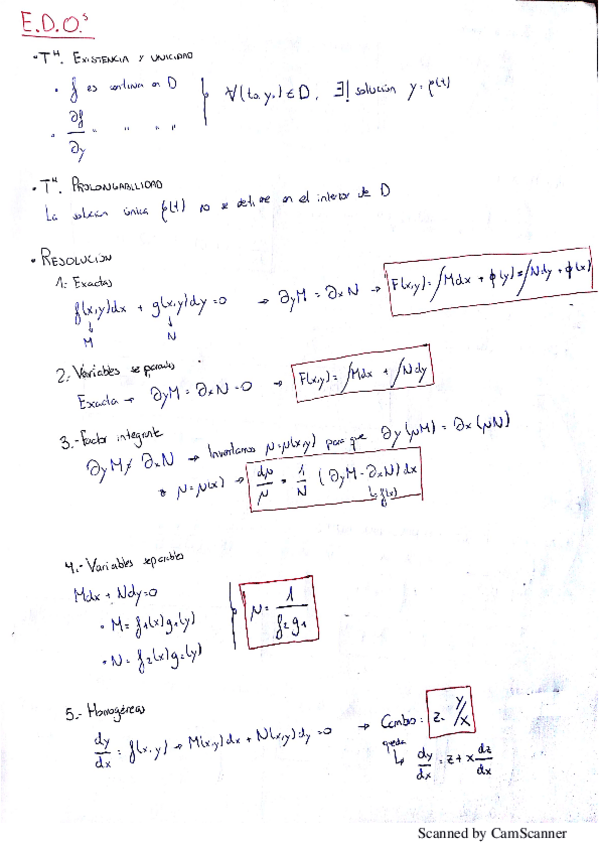 E.D.O.s
· TH. EXISTENCIA Y UNICIDAD
· f es continua en D
· ∂f/∂y " " " "
∀(t₀,y₀) ∈ D, ∃! solución y=φ(t)
· TH. PROLONGABILIDAD
La solución única φ(t) no se detiene en el interior de D
· RESOLUCIÓN
1.- Exactas
f(x,y)dx + g(x,y)dy = 0 → ∂yM = ∂xN → F(x,y) = ∫Mdx + ϕ(y) = ∫Ndy + ϕ(x)
↓ M ↓ N
2.- Variables separadas
Exacta → ∂yM = ∂xN = 0 → F(x,y) = ∫Mdx + ∫Ndy
3.- Factor integrante
∂yM ≠ ∂xN → Inventamos μ=μ(x,y) para que ∂y(μM) = ∂x(μN)
* μ=μ(x) → dμ/μ = 1/N (∂yM - ∂xN) dx
↳ f(x)
4.- Variables separables
Mdx + Ndy = 0
· M = f₁(x)g₁(y)
· N = f₂(x)g₂(y)
μ = 1/f₂g₁
5.- Homogéneas
dy/dx = f(x,y) → M(x,y)dx + N(x,y)dy = 0 → Cambio: z = y/x
queda
↳ dy/dx = z + x dz/dx
Scanned by CamScanner